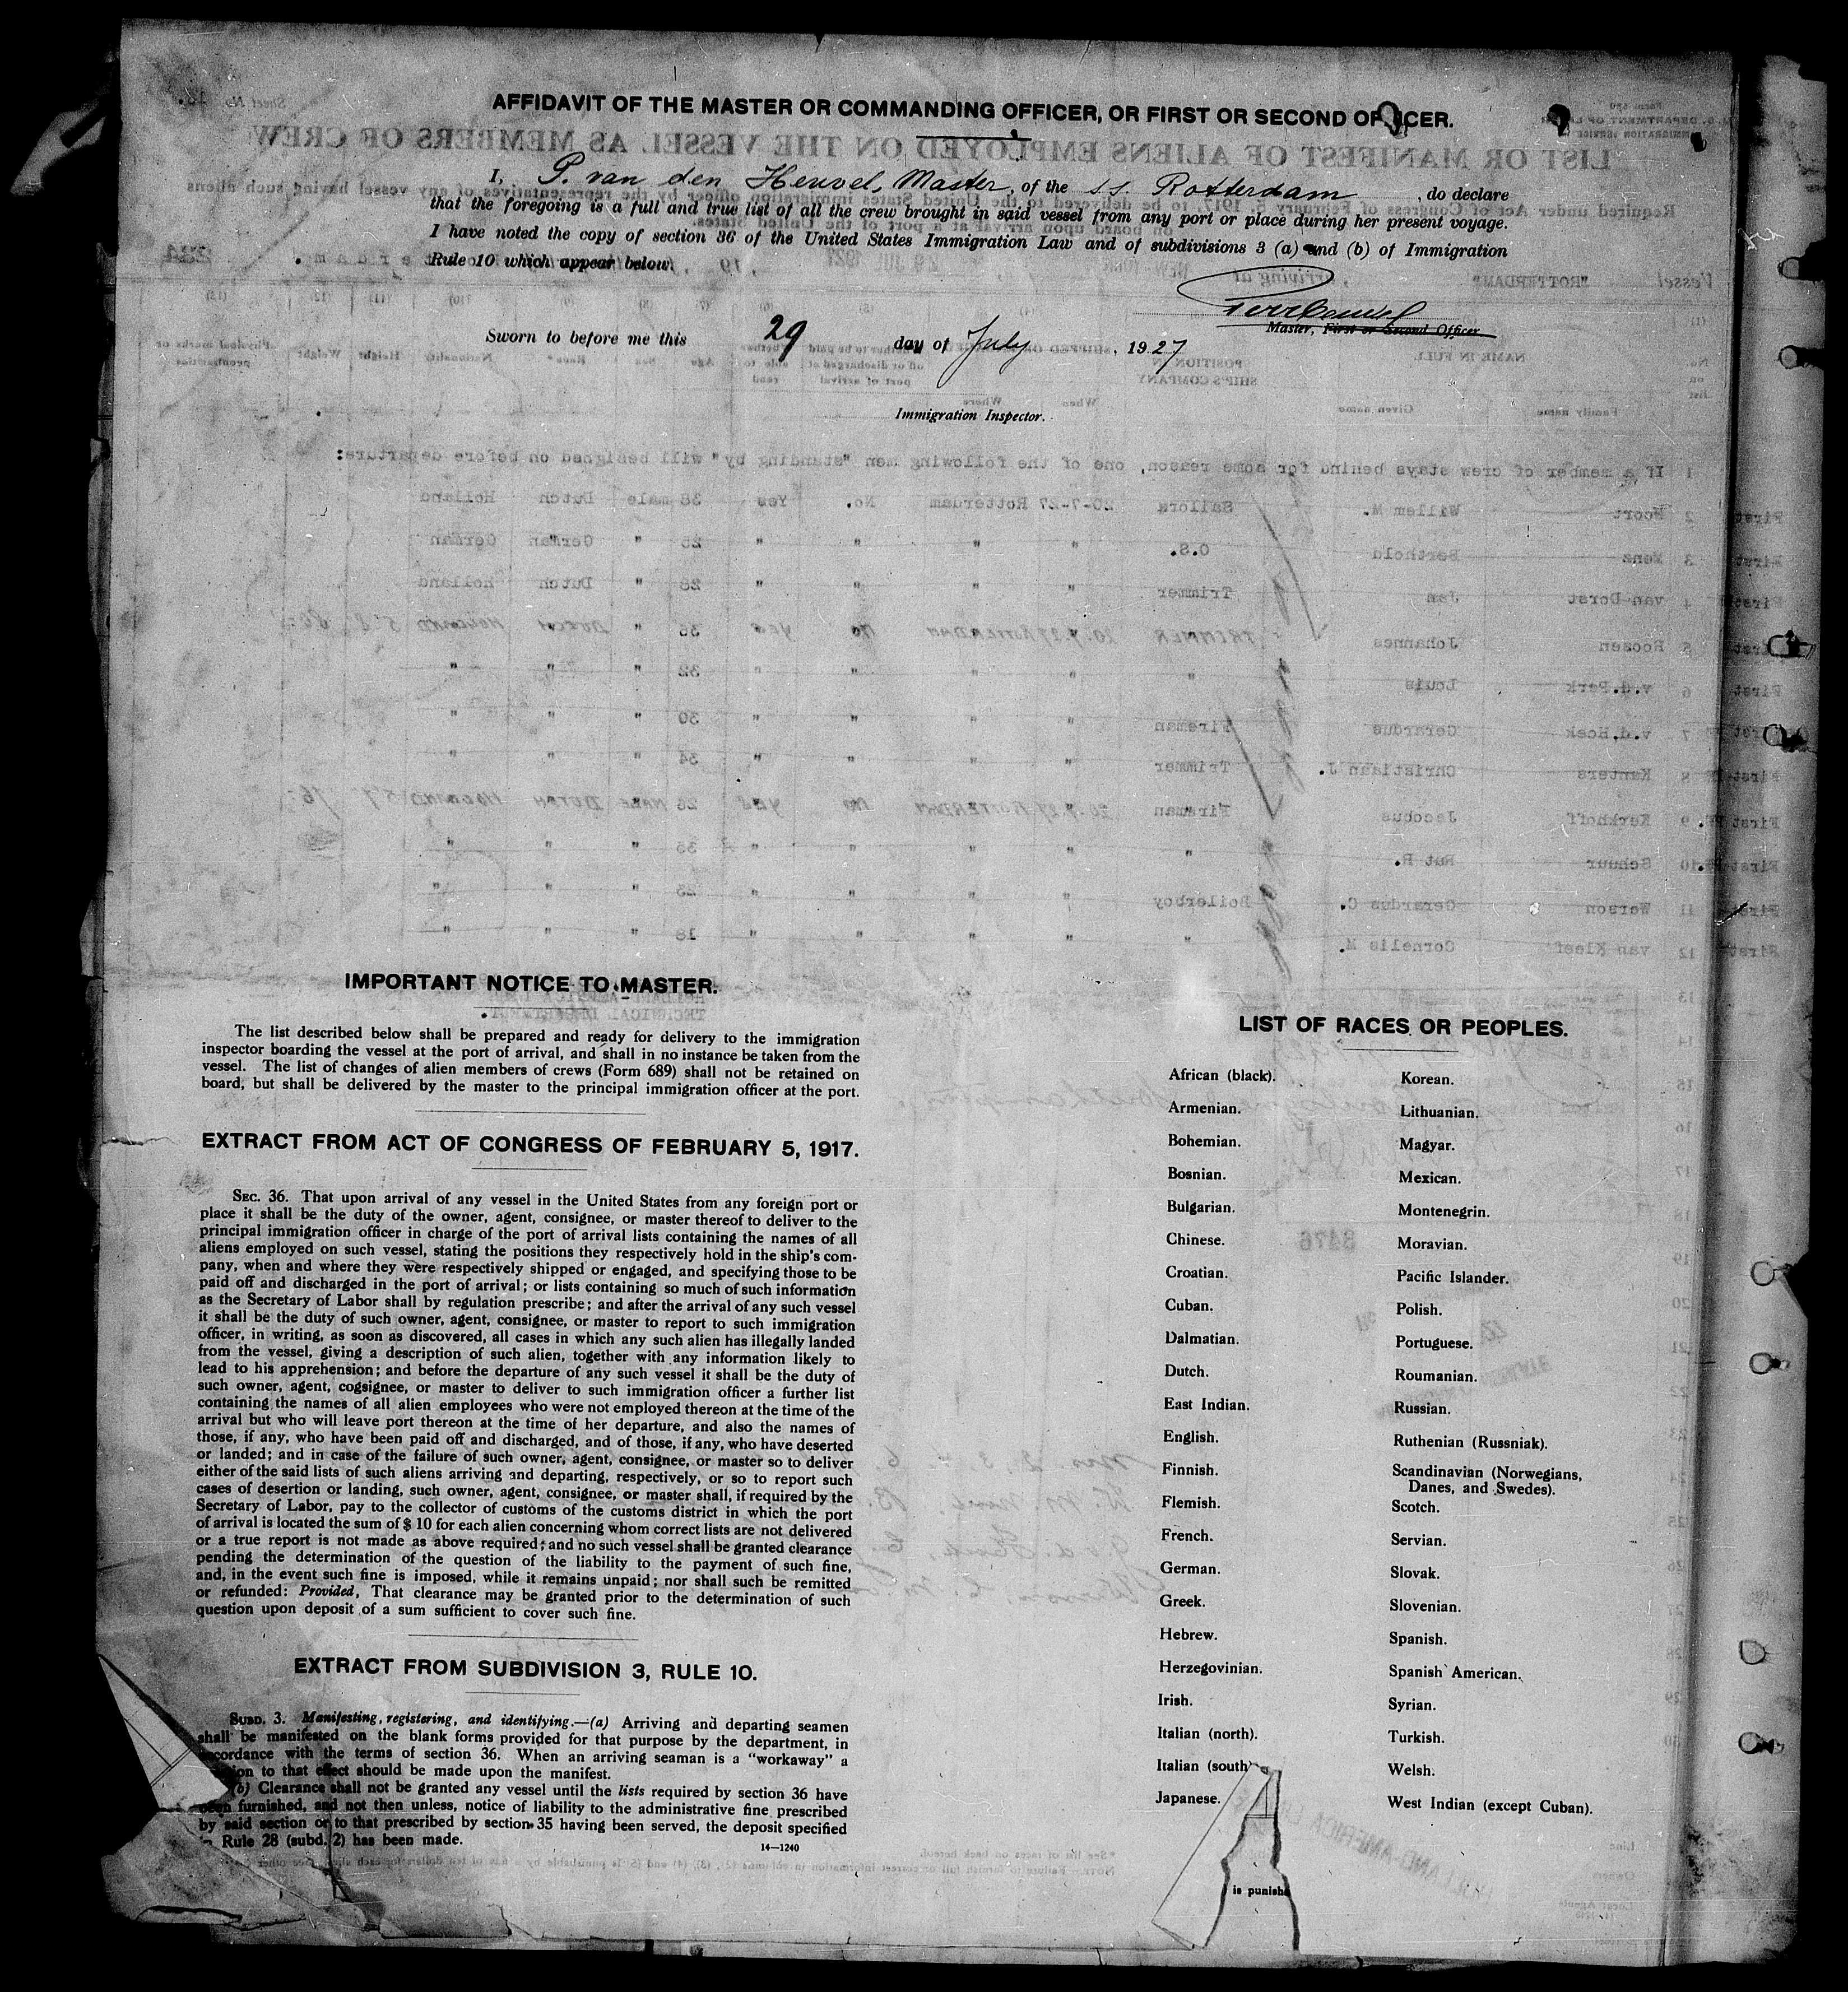 AFFIDAVIT OF THE MASTER OR COMMANDING OFFICER, OR FIRST OR SECOND OFFICER.
I, P. van den Heuvel, Master, of the s.s. Rotterdam, do declare
that the foregoing is a full and true list of all the crew brought in said vessel from any port or place during her present voyage.
I have noted the copy of section 36 of the United States Immigration Law and of subdivisions 3 (a) and (b) of Immigration
Rule 10 which appear below.
Master, First or Second Officer
Sworn to before me this 29 day of July, 1927
Immigration Inspector.
IMPORTANT NOTICE TO MASTER.
The list described below shall be prepared and ready for delivery to the immigration
inspector boarding the vessel at the port of arrival, and shall in no instance be taken from the
vessel. The list of changes of alien members of crews (Form 689) shall not be retained on
board, but shall be delivered by the master to the principal immigration officer at the port.
EXTRACT FROM ACT OF CONGRESS OF FEBRUARY 5, 1917.
SEC. 36. That upon arrival of any vessel in the United States from any foreign port or
place it shall be the duty of the owner, agent, consignee, or master thereof to deliver to the
principal immigration officer in charge of the port of arrival lists containing the names of all
aliens employed on such vessel, stating the positions they respectively hold in the ship's com-
pany, when and where they were respectively shipped or engaged, and specifying those to be
paid off and discharged in the port of arrival; or lists containing so much of such information
as the Secretary of Labor shall by regulation prescribe; and after the arrival of any such vessel
it shall be the duty of such owner, agent, consignee, or master to report to such immigration
officer, in writing, as soon as discovered, all cases in which any such alien has illegally landed
from the vessel, giving a description of such alien, together with any information likely to
lead to his apprehension; and before the departure of any such vessel it shall be the duty of
such owner, agent, cogsignee, or master to deliver to such immigration officer a further list
containing the names of all alien employees who were not employed thereon at the time of the
arrival but who will leave port thereon at the time of her departure, and also the names of
those, if any, who have been paid off and discharged, and of those, if any, who have deserted
or landed; and in case of the failure of such owner, agent, consignee, or master so to deliver
either of the said lists of such aliens arriving and departing, respectively, or so to report such
cases of desertion or landing, such owner, agent, consignee, or master shall, if required by the
Secretary of Labor, pay to the collector of customs of the customs district in which the port
of arrival is located the sum of $ 10 for each alien concerning whom correct lists are not delivered
or a true report is not made as above required; and no such vessel shall be granted clearance
pending the determination of the question of the liability to the payment of such fine,
and, in the event such fine is imposed, while it remains unpaid; nor shall such be remitted
or refunded: Provided, That clearance may be granted prior to the determination of such
question upon deposit of a sum sufficient to cover such fine.
EXTRACT FROM SUBDIVISION 3, RULE 10.
SUBD. 3. Manifesting, registering, and identifying.—(a) Arriving and departing seamen
shall be manifested on the blank forms provided for that purpose by the department, in
accordance with the terms of section 36. When an arriving seaman is a "workaway" a
to that effect should be made upon the manifest.
(b) Clearance shall not be granted any vessel until the lists required by section 36 have
been furnished, and not then unless, notice of liability to the administrative fine prescribed
by said section or to that prescribed by section 35 having been served, the deposit specified
Rule 28 (subd. 2) has been made.
14—1240
LIST OF RACES OR PEOPLES.
African (black).
Armenian.
Bohemian.
Bosnian.
Bulgarian.
Chinese.
Croatian.
Cuban.
Dalmatian.
Dutch.
East Indian.
English.
Finnish.
Flemish.
French.
German.
Greek.
Hebrew.
Herzegovinian.
Irish.
Italian (north).
Italian (south)
Japanese.
Korean.
Lithuanian.
Magyar.
Mexican.
Montenegrin.
Moravian.
Pacific Islander.
Polish.
Portuguese.
Roumanian.
Russian.
Ruthenian (Russniak).
Scandinavian (Norwegians,
Danes, and Swedes).
Scotch.
Servian.
Slovak.
Slovenian.
Spanish.
Spanish American.
Syrian.
Turkish.
Welsh.
West Indian (except Cuban).
is punish